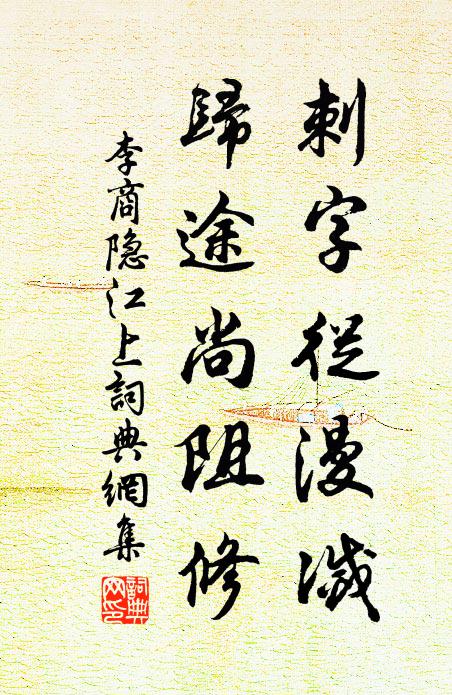 刺字從漫滅
歸途尚阻修
李商隐江上詞典網集
詞典网印